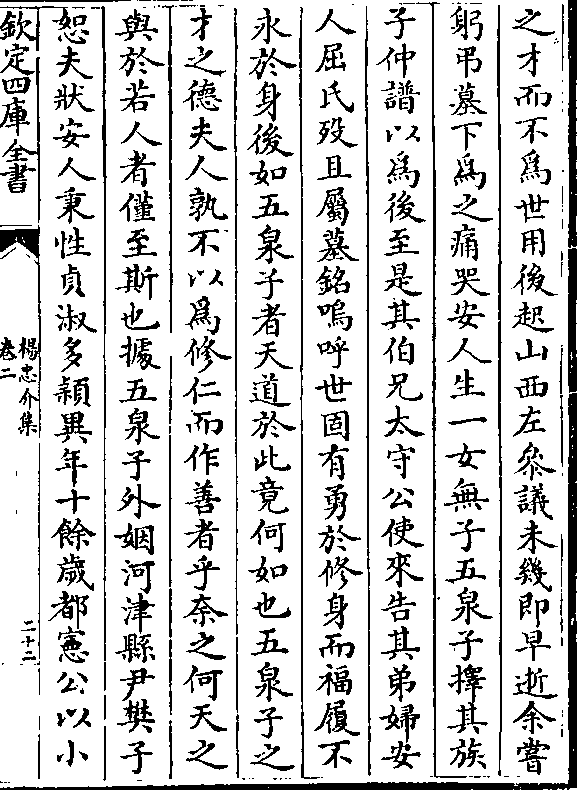 之才而不爲世用後起山西左叅議未幾即早逝余嘗
躬弔墓下爲之痛哭安人生一女無子五泉子擇其族
子仲譜以爲後至是其伯兄太守公使來告其弟婦安
人屈氏歿且屬墓銘嗚呼世固有勇於修身而福履不
永於身後如五泉子者天道於此竟何如也五泉子之
才之德夫人孰不以爲修仁而作善者乎奈之何天之
與於若人者僅至斯也據五泉子外姻河津縣尹樊子
恕夫狀安人秉性貞淑多穎異年十餘歳都憲公以小
欽定四庫全書
楊忠介集
卷二
二十二